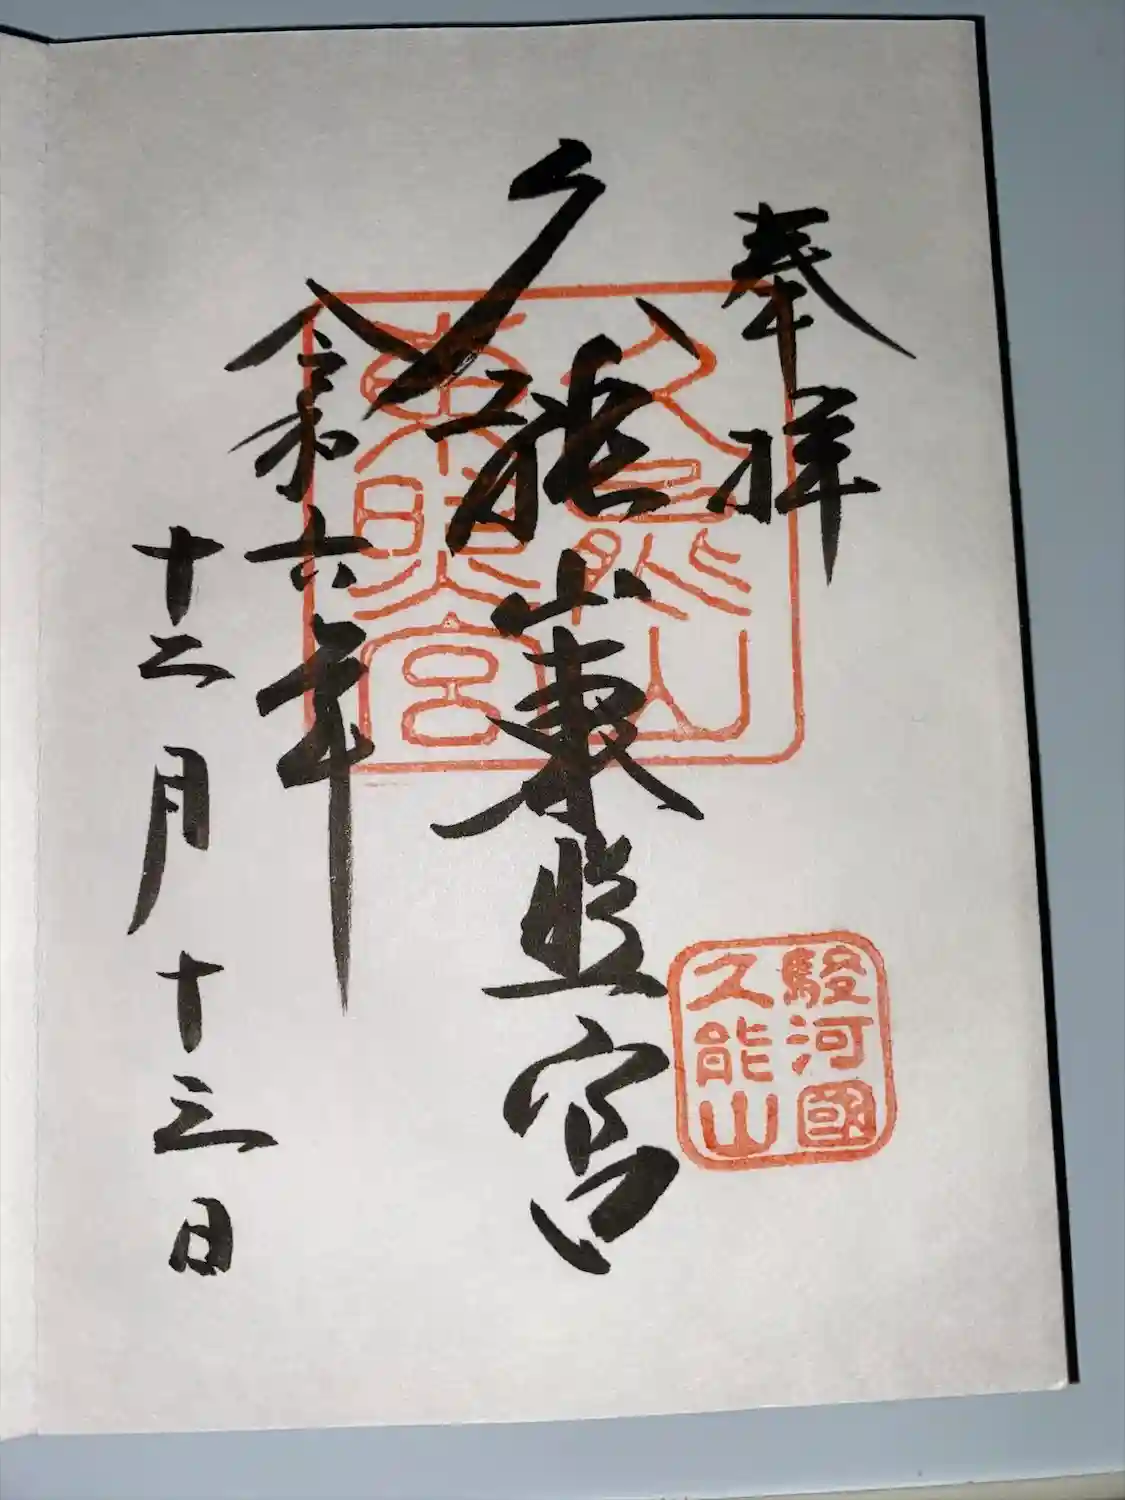 奉拝
久能山東照宮
令和六年
十二月十三日
久能山
東照宮
駿河國
久能山